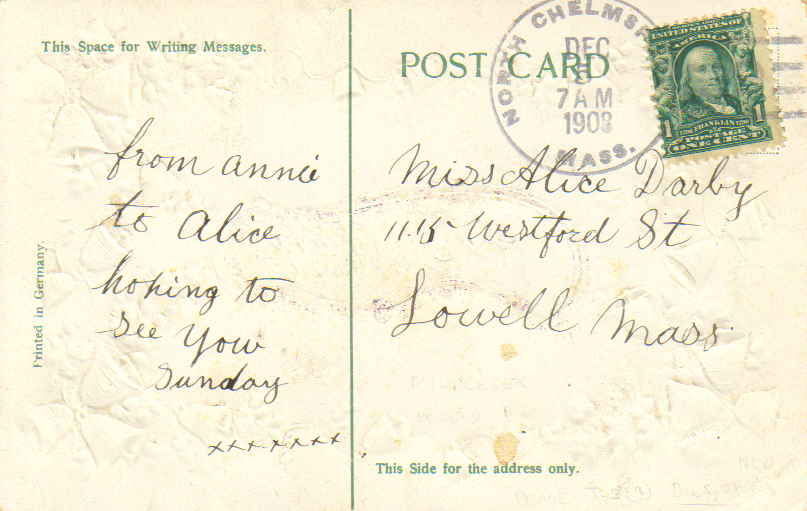 This Space for Writing Messages.
POST CARD
NORTH CHELMSF
DEC
7 AM
1908
MASS.
UNITED STATES OF
AMERICA
1 FRANKLIN 1
POSTAGE
ONE CENT
from annie
to Alice
hoping to
See Yow
Sunday
xxxxxxx
Miss Alice Darby
1115 Westford St
Lowell Mass.
Printed in Germany.
This Side for the address only.